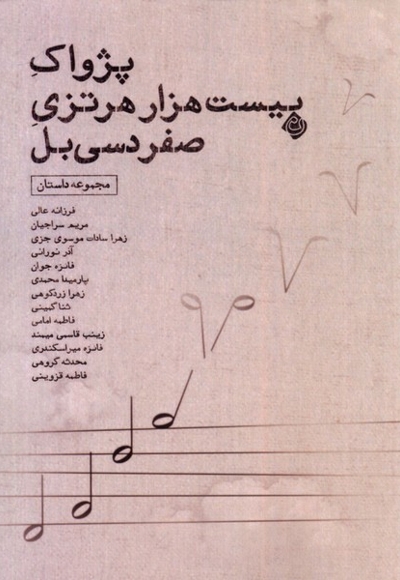 پژواکِ
بیست هزار هرتزیِ
صفر دسی بل
مجموعه داستان
فرزانه عالی
مریم سراجیان
زهرا سادات موسوی جزی
آذر نورانی
فائزه جوان
پارمیدا محمدی
زهرا زردکوهی
ثنا گبینی
فاطمه امامی
زینب قاسمی میمند
فائزه میراسکندری
محدثه گروهی
فاطمه قزوینی